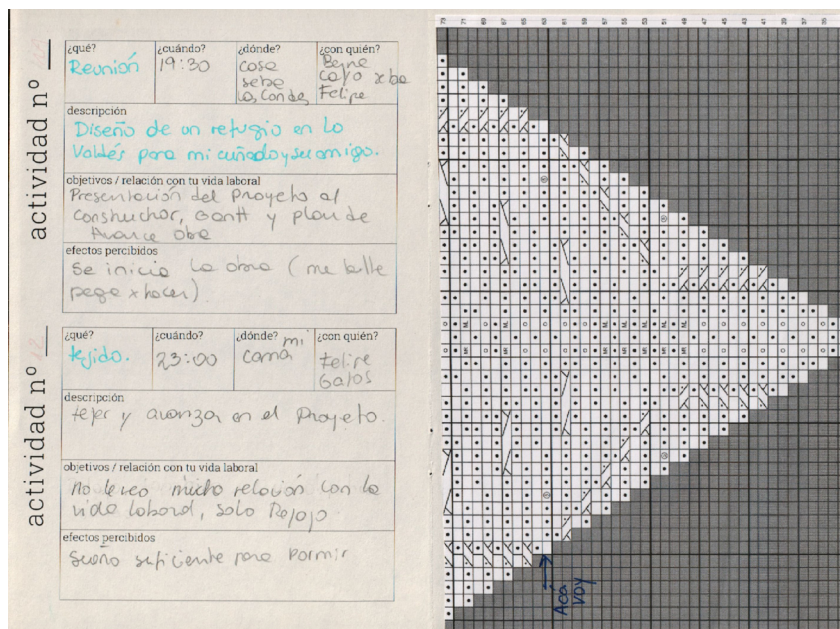 actividad nº
¿qué?
Reunión
¿cuándo?
19:30
¿dónde?
casa
seba
Las Condes
¿con quién?
Cayo x ba
Felipe
descripción
Diseño de un refugio en Lo
Valdés para mi cuñado y su amigo.
objetivos / relación con tu vida laboral
Presentación del Proyeto al
Constructor, Gantt y plan de
Avance obra
efectos percibidos
Se inicia la obra (me
pega x hacer)
actividad nº
12
¿qué?
tejido.
¿cuándo?
23:00
¿dónde?
mi
cama
¿con quién?
Felipe
Gatos
descripción
tejer y avanzar en el Proyeto.
objetivos / relación con tu vida laboral
No le veo mucha relación con la
vida laboral, solo Relajo.
efectos percibidos
Sueño suficiente para Dormir
73 71 69 67 65 63 61 59 57 55 53 51 49 47 45 43 41 39 37 35
Acá
voy